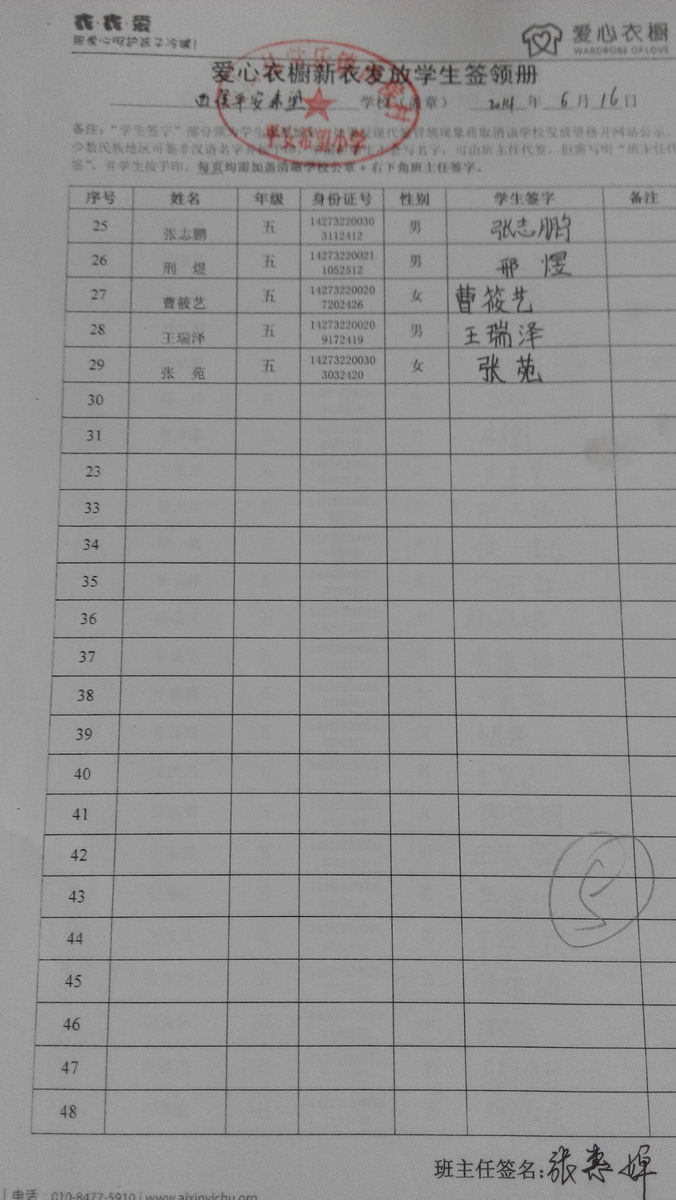 衣·衣·爱
用爱心呵护孩子冷暖!
爱心衣橱
WARDROBE OF LOVE
爱心衣橱新衣发放学生签领册
学校（盖章） 2014 年 6 月 16 日
备注：“学生签字”部分须为学生
现代签冒领现象将取消该学校发放资格并网站公示，
少数民族地区可签非汉语名字并按手印，
写名字，可由班主任代签，但需写明“班主任代
签”，并学生按手印，每页均需加盖清晰学校公章+右下角班主任签字。
序号 姓名 年级 身份证号 性别 学生签字 备注
25 张志鹏 五 14273220030 男 张志鹏
3112412
26 荆 煜 五 14273220021 男 邢 煜
1052512
27 曹筱艺 五 14273220020 女 曹筱艺
7202426
28 王瑞泽 五 14273220020 男 王瑞泽
9172419
29 张 苑 五 14273220030 女 张 苑
3032420
30
31
23
33
34
35
36
37
38
39
40
41
42
43
44
45
46
47
48
5
班主任签名:张惠婵
电话：010-8477-5910 | www.aixinyichu.org